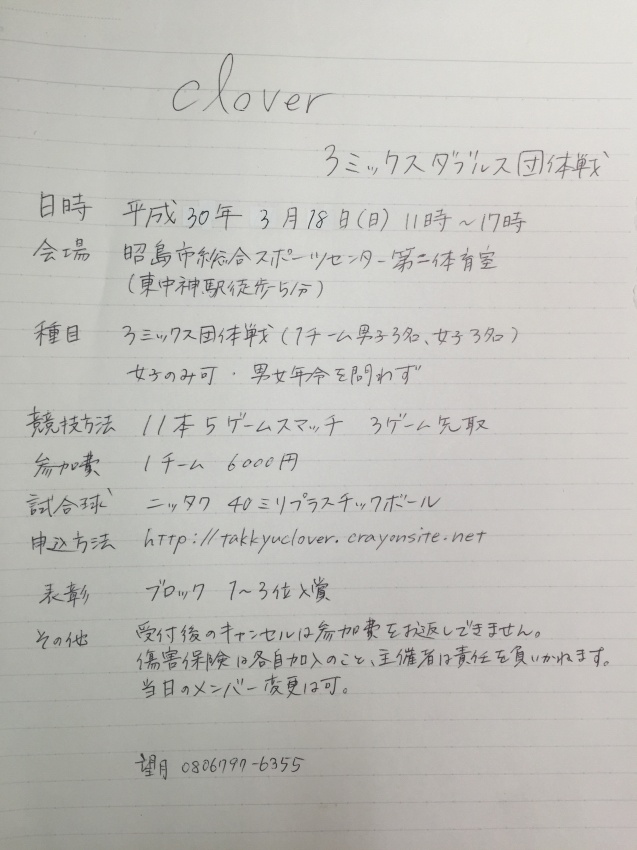 clover
3ミックスダブルス団体戦
日時 平成30年 3月18日(日) 11時～17時
会場 昭島市総合スポーツセンター第二体育室
(東中神駅徒歩5分)
種目 3ミックス団体戦(1チーム男子3名、女子3名)
女子のみ可・男女年令を問わず
競技方法 11本5ゲームスマッチ 3ゲーム先取
参加費 1チーム 6000円
試合球 ニッタク 40ミリプラスチックボール
申込方法 http://takkyuclover.crayonsite.net
表彰 ブロック 1～3位入賞
その他 受付後のキャンセルは参加費をお返しできません。
傷害保険は各自加入のこと、主催者は責任を負いかねます。
当日のメンバー変更は可。
望月 0806797-6355